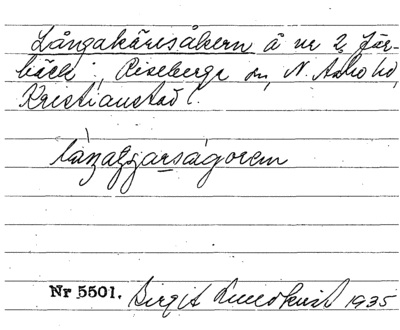 Långakärrsåkern å nr 2 Fär-
bäck, Riseberga sn, N. Åsbo hd,
Kristianstad l.
långaʒʒarságorem
Nr 5501. Birgit Lundkvist 1935